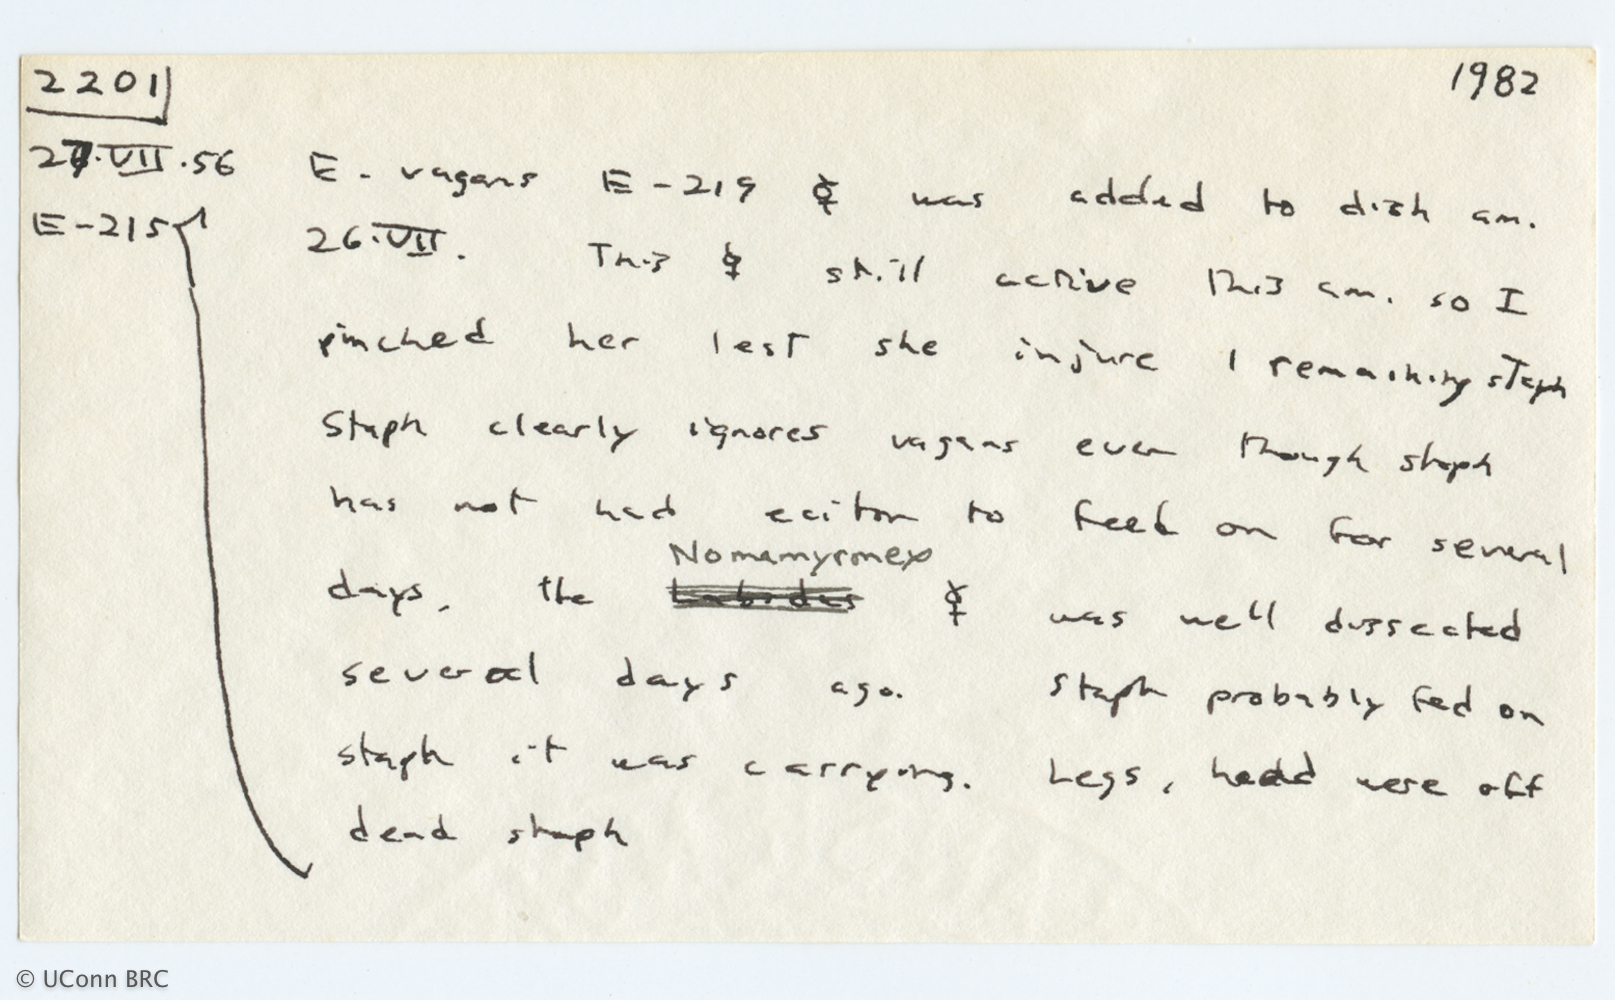 2201 1982
27.VII.56 E. vagans E-219 ☿ was added to dish am.
E-215 26.VII. This ☿ still active this am. so I
pinched her lest she injure 1 remaining staph
Staph clearly ignores vagans even though staph
has not had eciton to feed on for several
Nomamyrmex
days, the Labidus ☿ was well dissected
several days ago. Staph probably fed on
staph it was carrying. Legs, head were off
dead staph
© UConn BRC